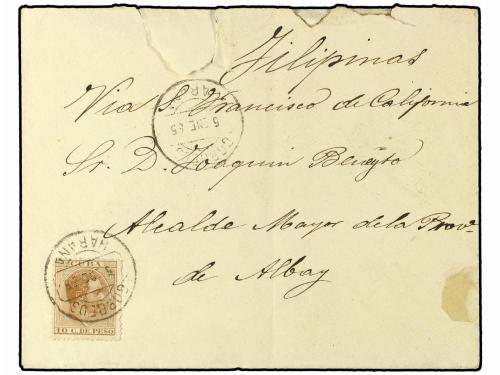 Filipinas
Via S. Francisco de California
Sr. D. Joaquin Beneyto
Alcalde Mayor de la Prova.
de Albay
CORREOS
5 ENE 85
HABANA
CUBA
CORREOS
HABANA
10 C. DE PESO